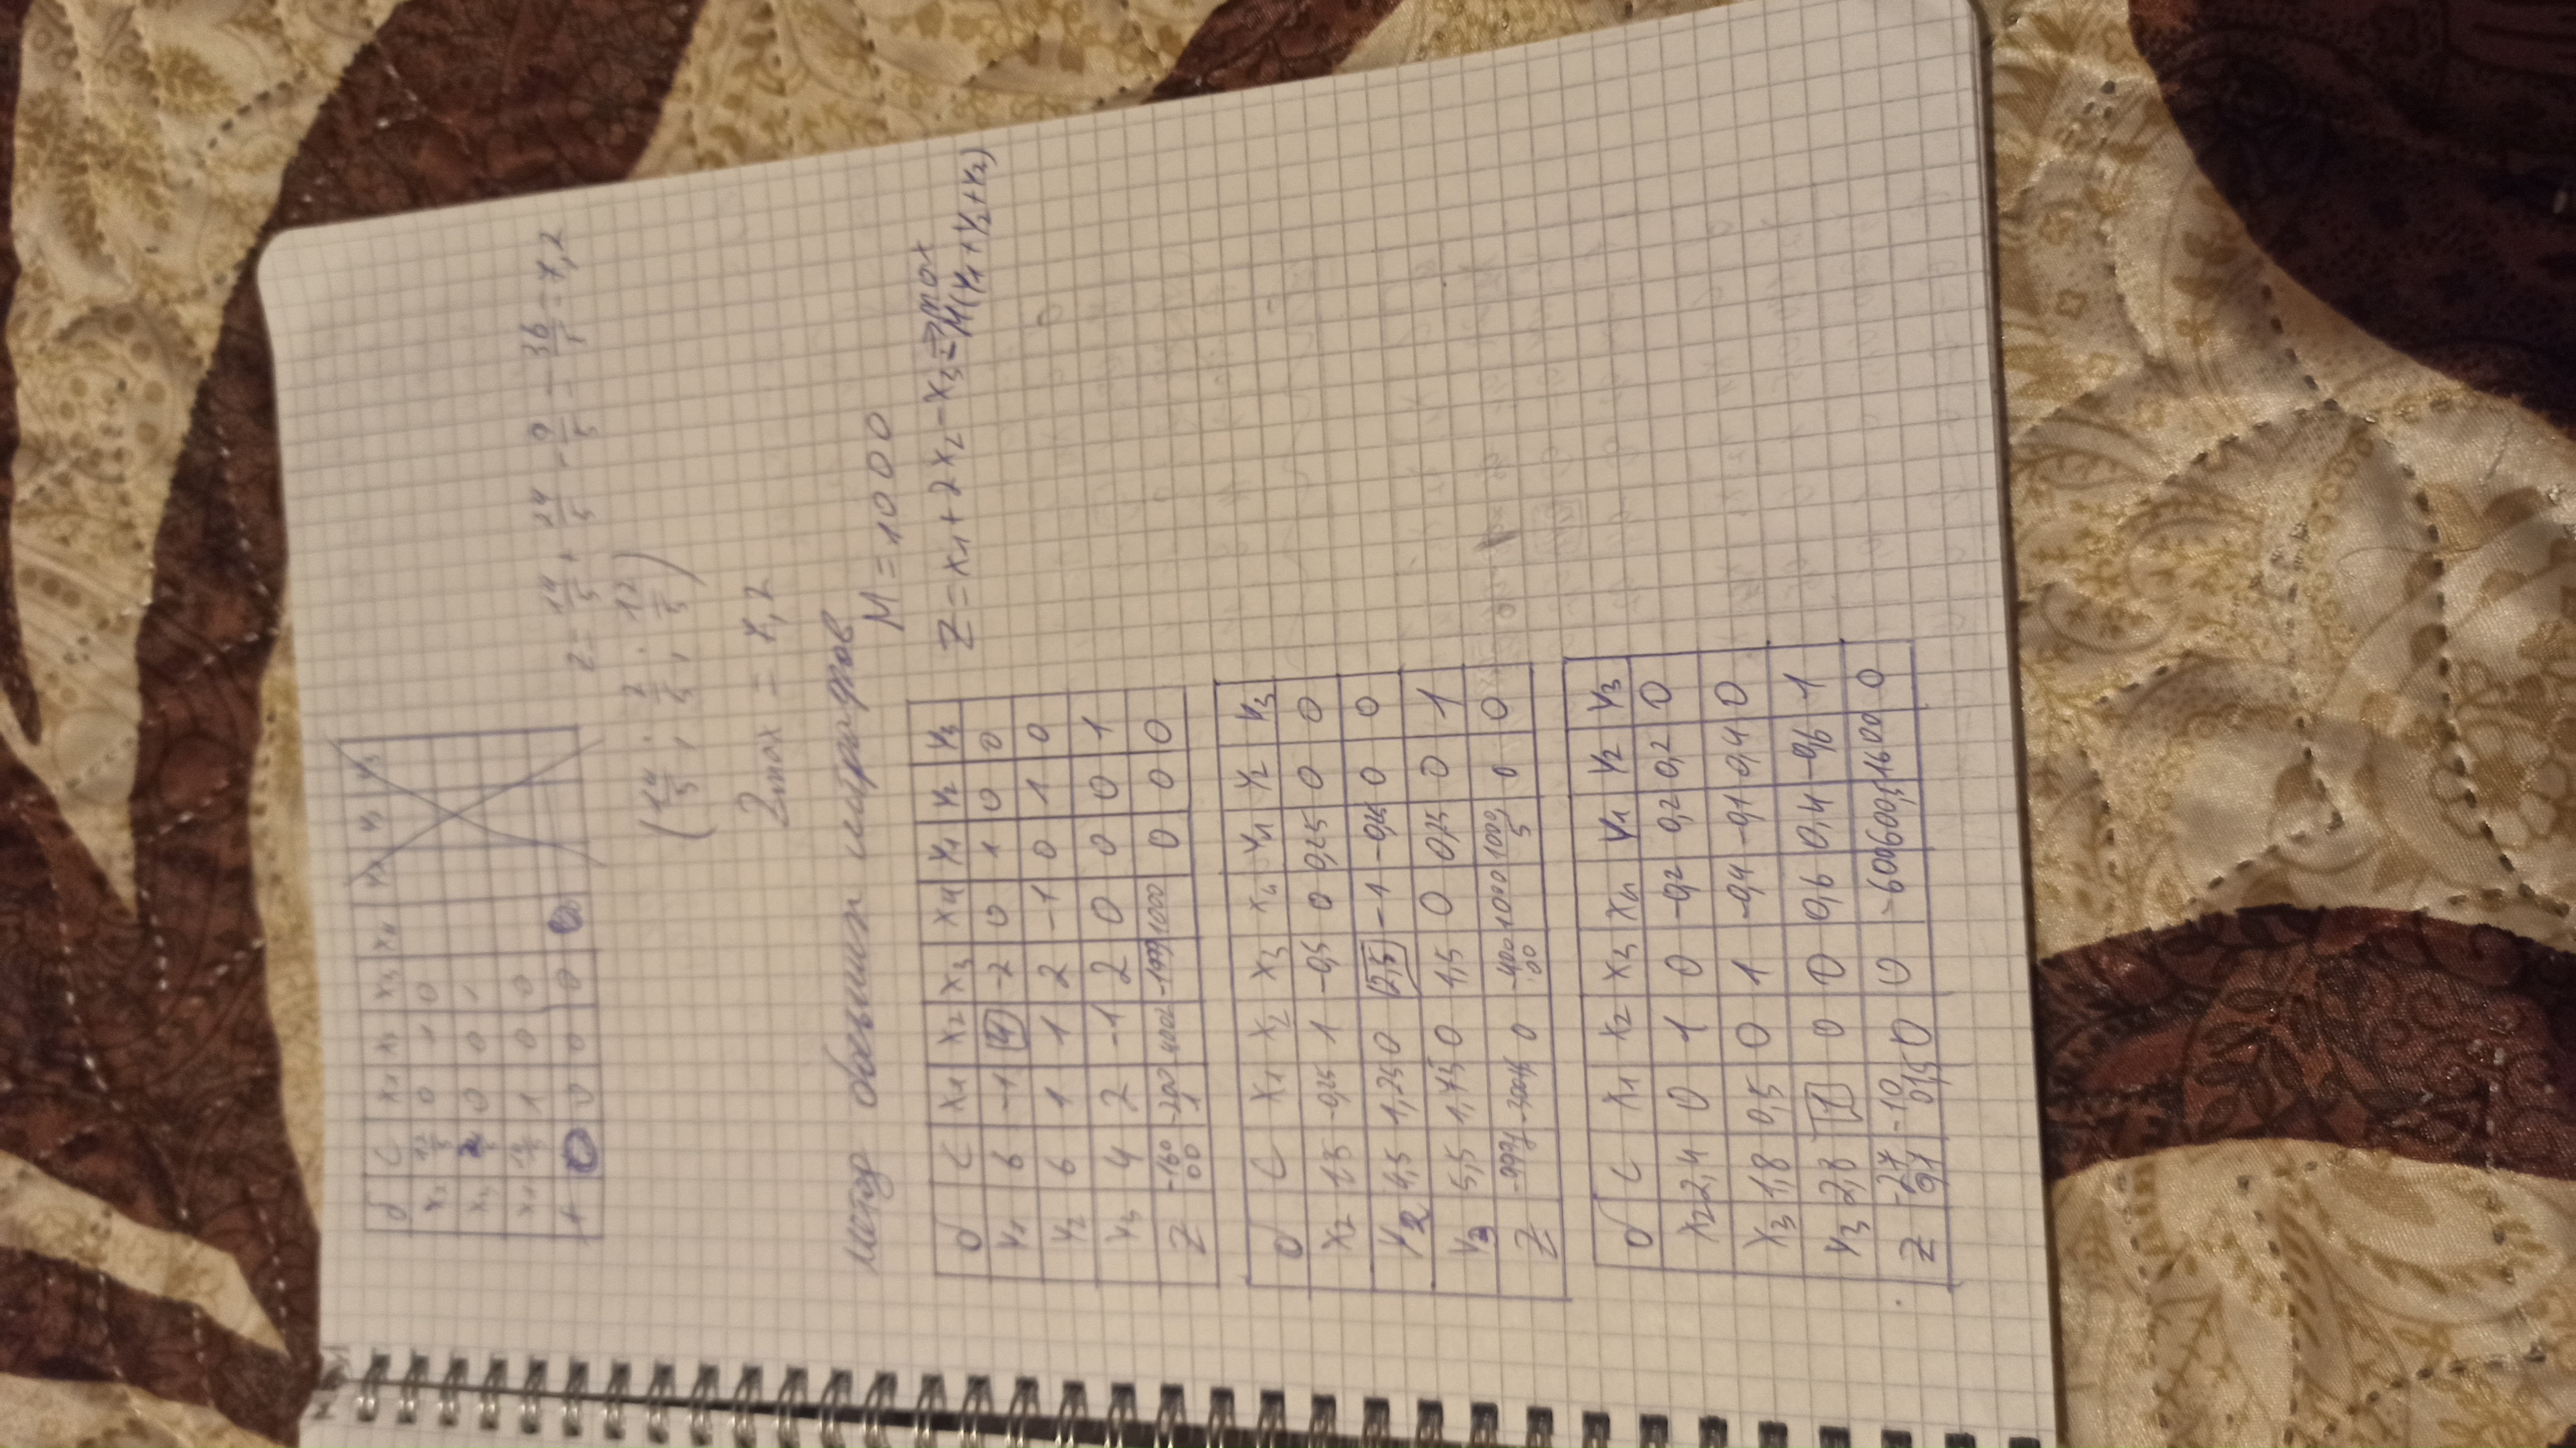 б C X₁ X₂ X₃ X₄
0 1 0
0 0 1
X₁ 14/5 1 0 0
0 0 0
Z = 14/5 + 24/5 - 9/5 = 36/5 = 7,2
(14/5 ; 2/5 ; 12/5)
Zmax = 7,2
Метод больших штрафов
M = 1000
Z = X₁ + 2X₂ - X₃ → max
- M(Y₁ + Y₂ + Y₂)
б C X₁ X₂ X₃ X₄ Y₁ Y₂ Y₃
Y₁ 6 -1 4 -2 0 1 0 0
Y₂ 6 1 1 2 -1 0 1 0
Y₃ 4 2 -1 2 0 0 0 1
Z -16000 -2001 -4002 -1999 1000 0 0 0
б C X₁ X₂ X₃ X₄ Y₁ Y₂ Y₃
X₂ 1,5 -0,25 1 -0,5 0 0,25 0 0
Y₂ 4,5 1,25 0 2,5 -1 -0,25 0 0
Y₃ 5,5 1,75 0 1,5 0 0,25 0 1
Z 0 -40000 1000 1000,5 0 0
б C X₁ X₂ X₃ X₄ Y₁ Y₂ Y₃
X₂ 2,4 0 1 0 -0,2 0,2 0,2 0
X₃ 1,8 0,5 0 1 -0,4 -0,1 0,4 0
Y₃ 2,8 1 0 0 0,6 0,4 -0,6 1
Z -2791 -1001,5 0 0 -600 600,5 1600 0